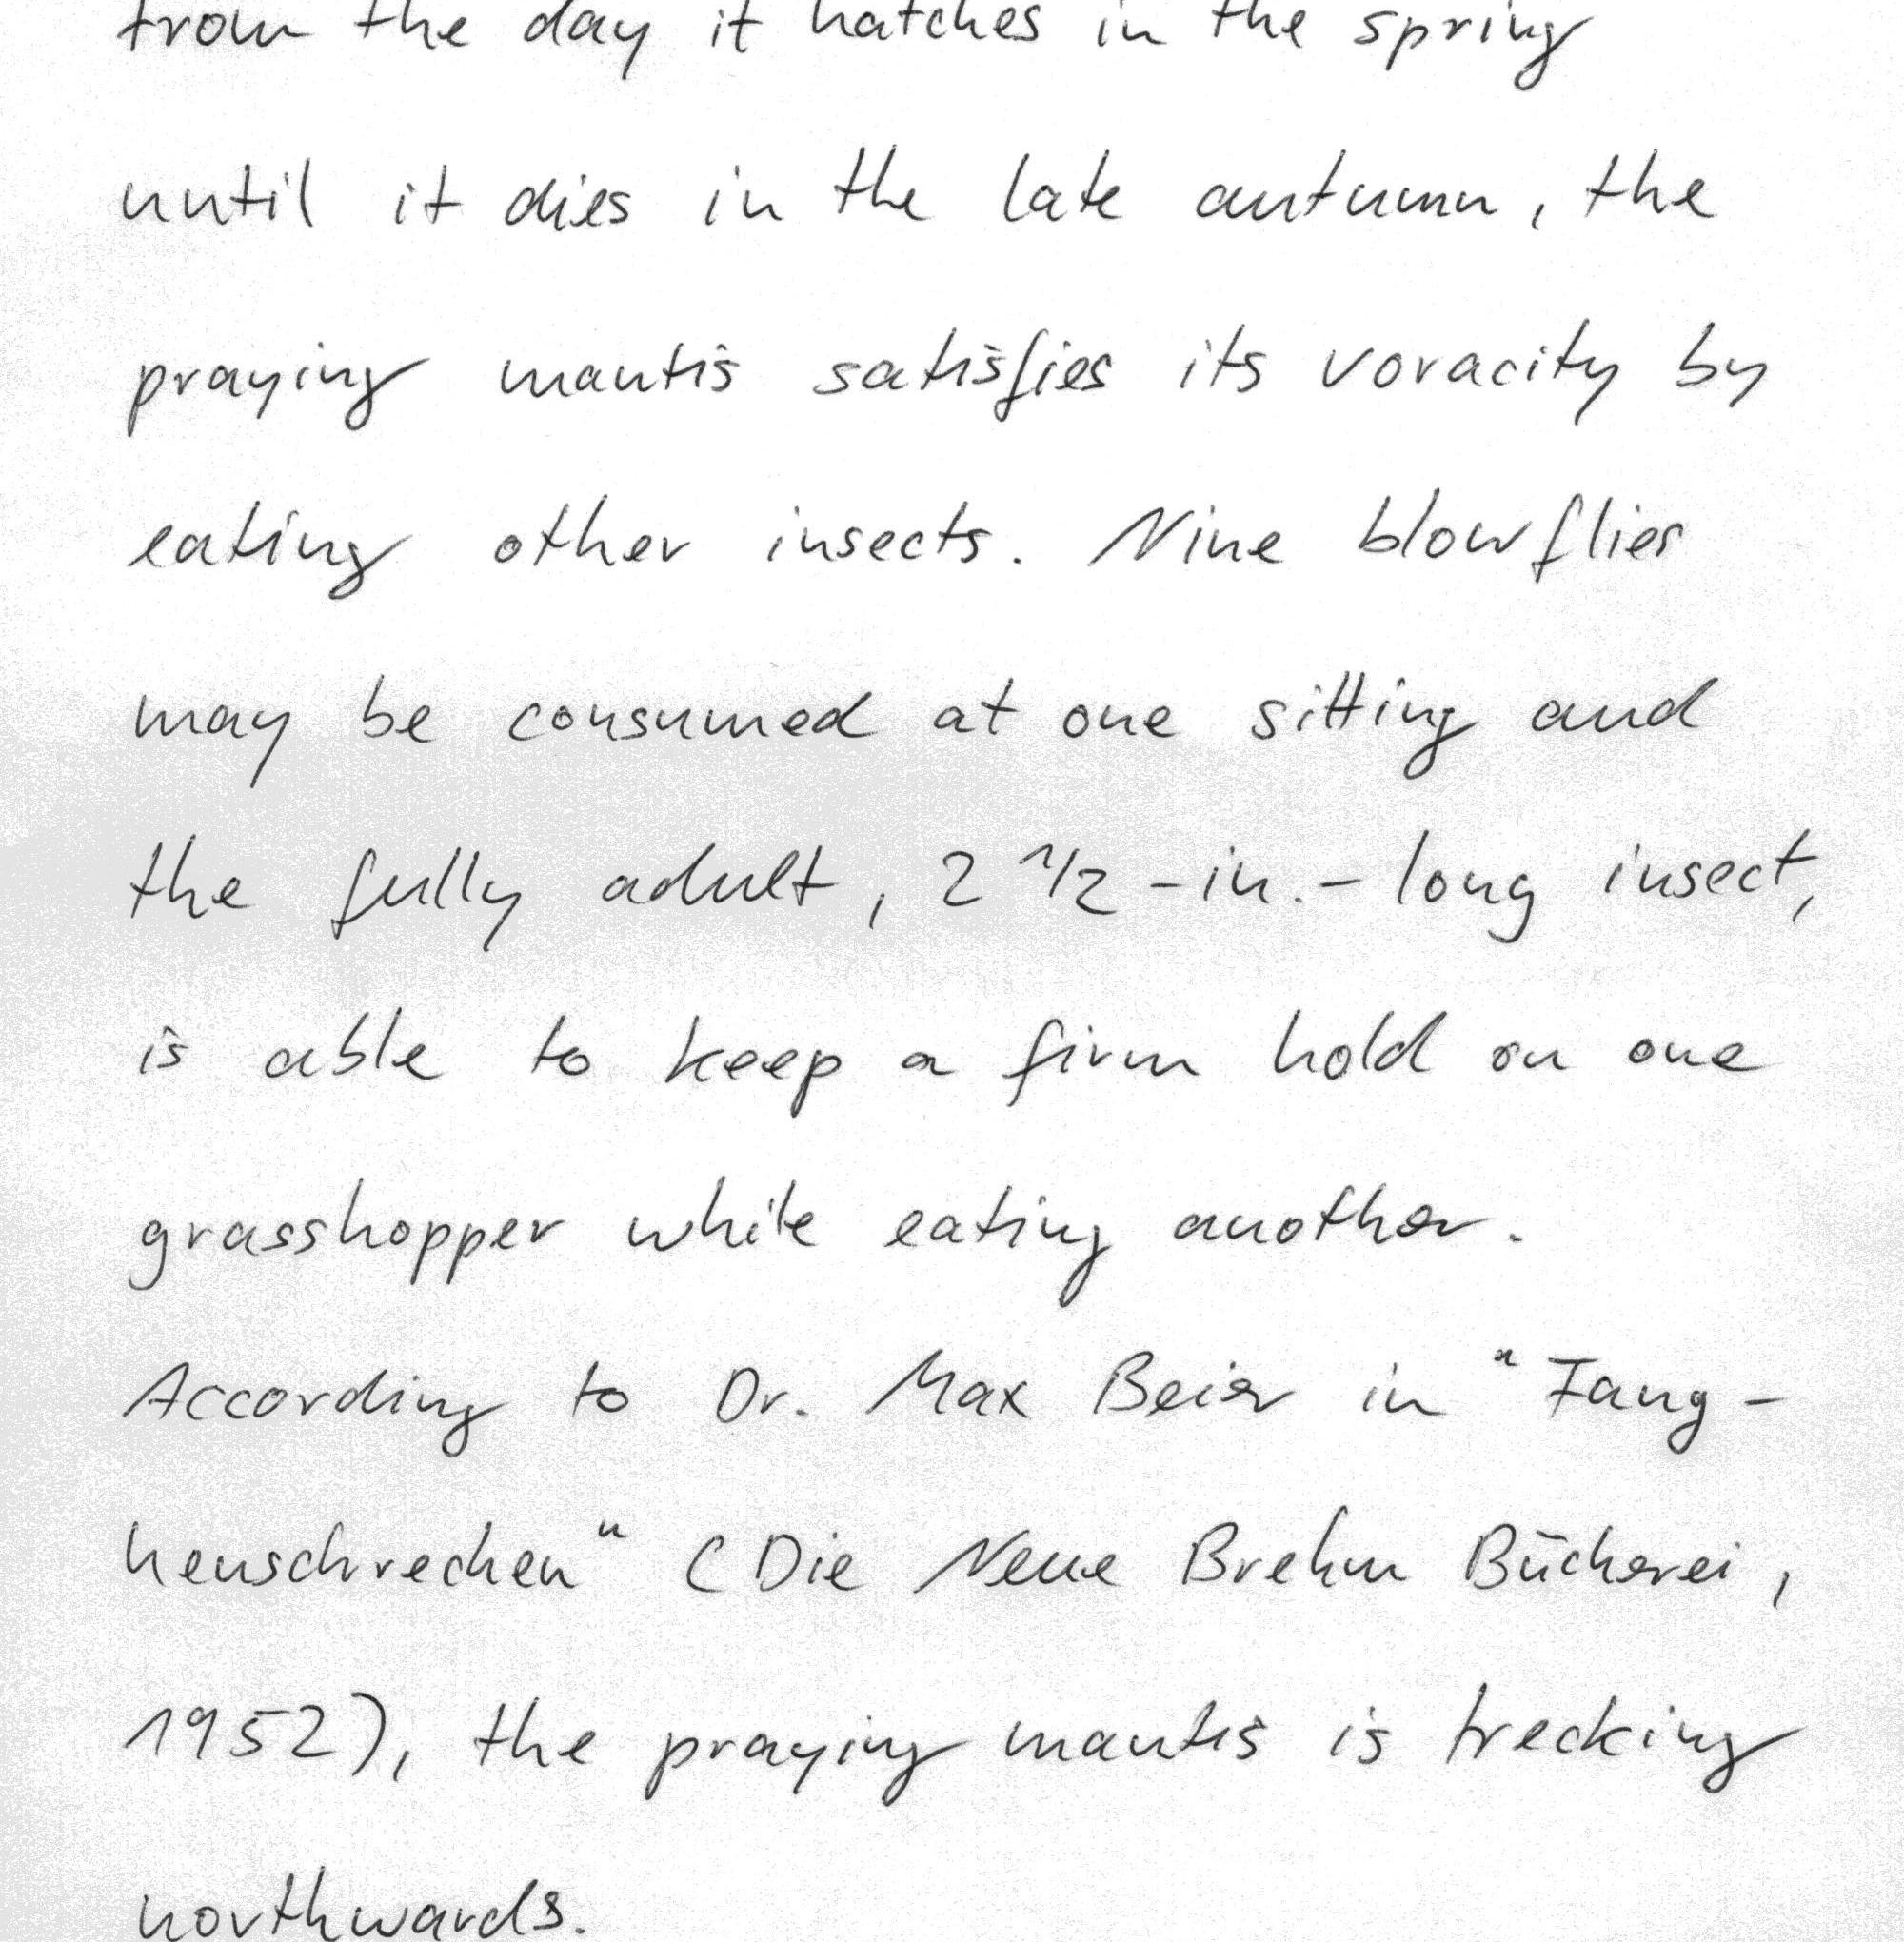 from the day it hatches in the spring
until it dies in the late autumn, the
praying mantis satisfies its voracity by
eating other insects. Nine blowflies
may be consumed at one sitting and
the fully adult, 2 1/2 -in.- long insect,
is able to keep a firm hold on one
grasshopper while eating another.
According to Dr. Max Beier in "Fang-
heuschrecken" (Die Neue Brehm Bücherei,
1952), the praying mantis is trecking
northwards.